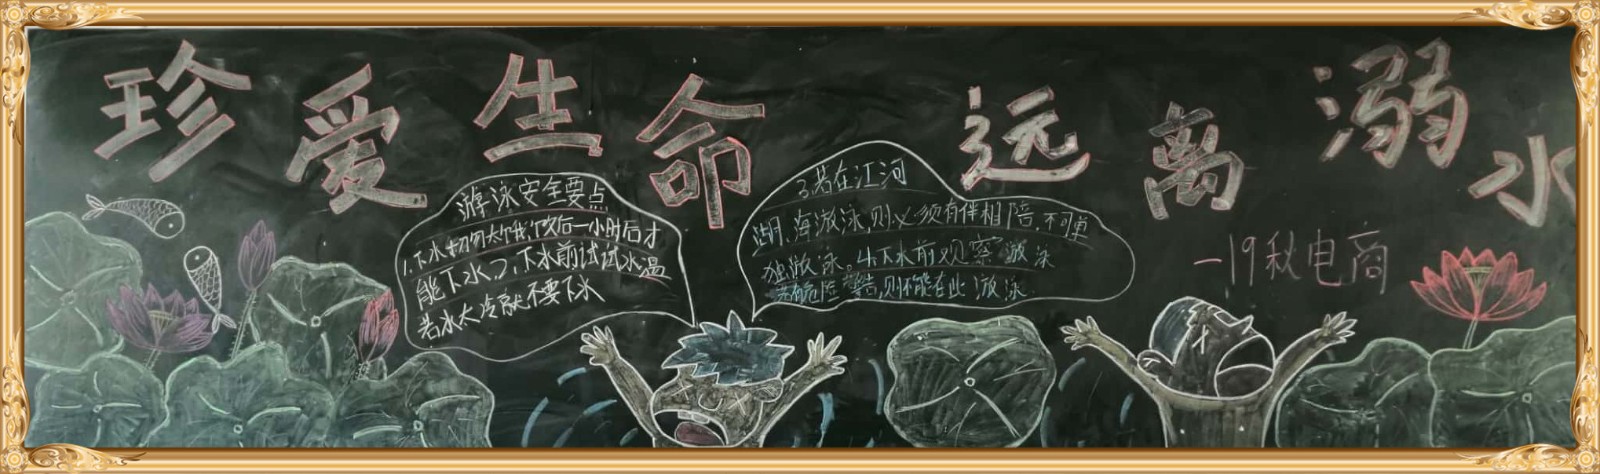 珍爱生命 远离溺水
游泳安全要点
1.下水切勿太饿、饭后一小时后才
能下水,2,下水前试试水温
若水太冷就不要下水
3若在江河
湖、海游泳,则必须有伴相陪,不可单
独游泳。4下水前观察游泳
若有危险警告,则不能在此游泳
一19秋电商